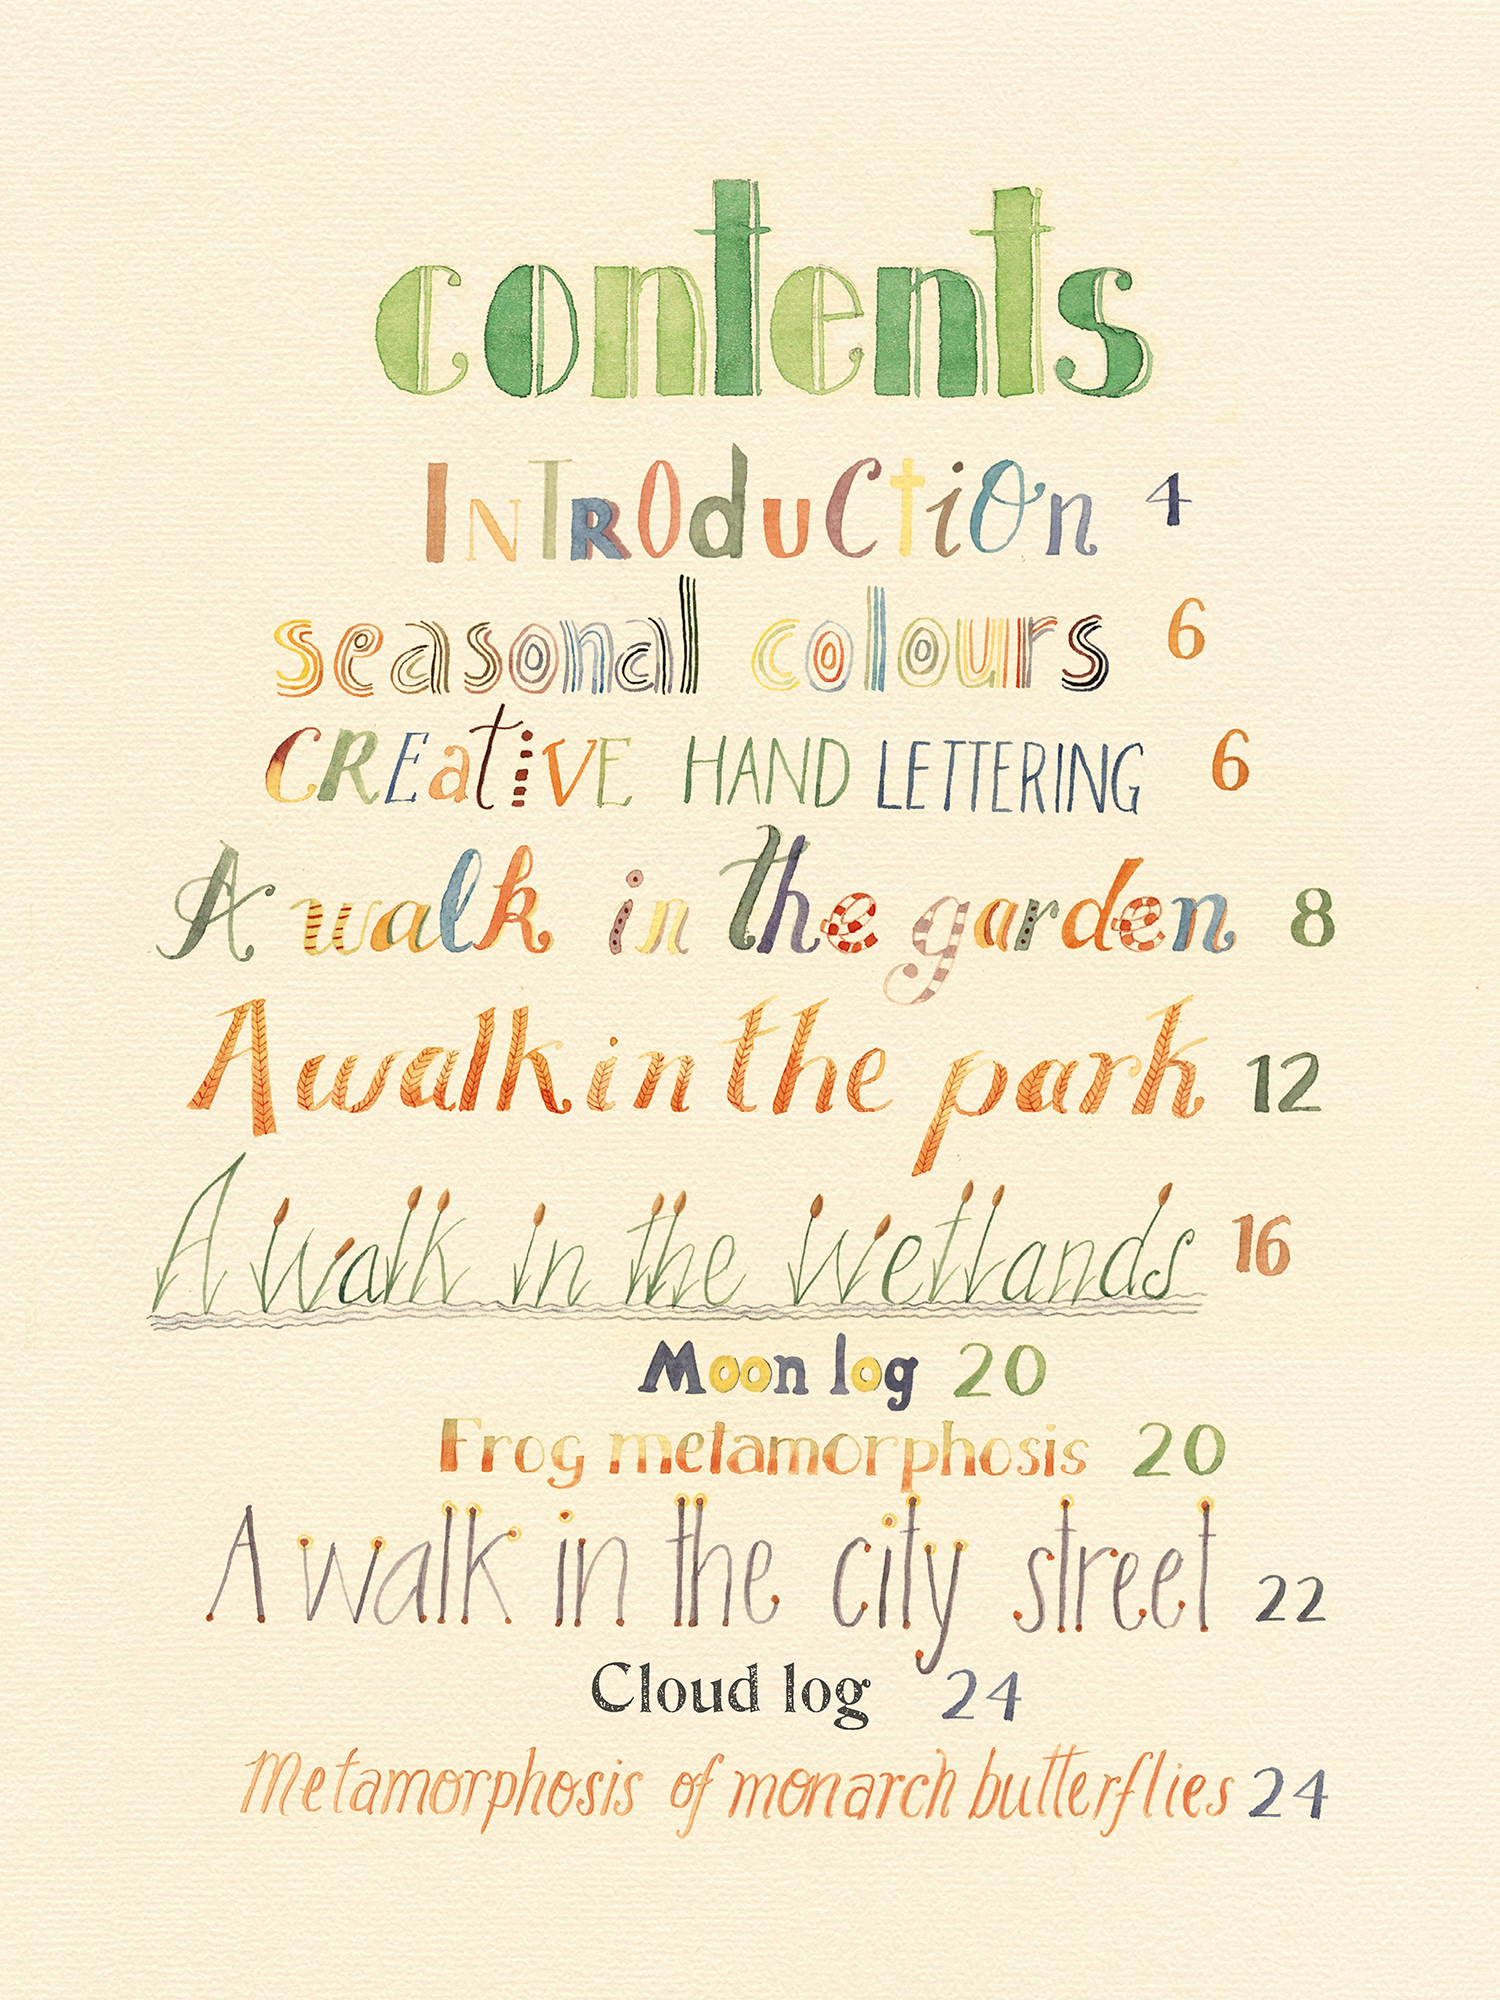 contents
INTRODuCtiOn 4
seasonal colours 6
CREatiVE HAND LETTERING 6
A walk in the garden 8
A walk in the park 12
A walk in the wetlands 16
Moon log 20
Frog metamorphosis 20
A walk in the city street 22
Cloud log 24
Metamorphosis of monarch butterflies 24